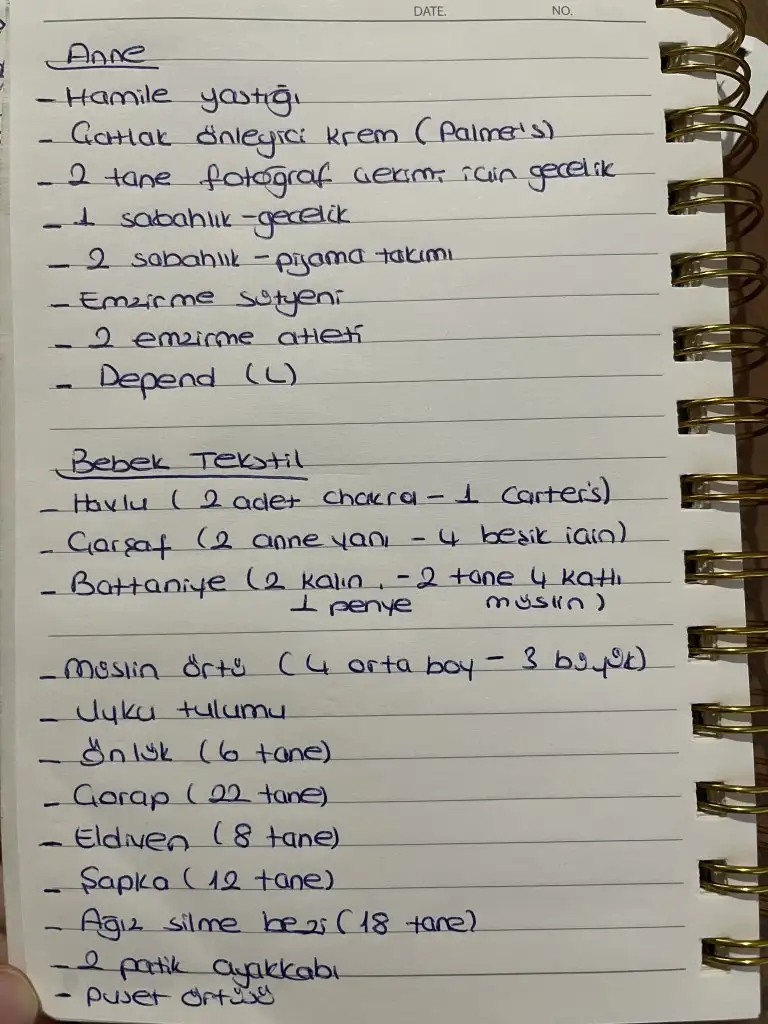 DATE. NO.
Anne
- Hamile yastığı
- Çatlak önleyici krem (Palmer's)
- 2 tane fotoğraf çekimi için gecelik
- 1 sabahlık - gecelik
- 2 sabahlık - pijama takımı
- Emzirme sütyeni
- 2 emzirme atleti
- Depend (L)
Bebek Tekstil
- Havlu ( 2 adet chakra - 1 Carter's)
- Çarşaf (2 anne yanı - 4 beşik için)
- Battaniye (2 kalın, - 2 tane 4 katlı
1 penye müslin )
- Müslin örtü ( 4 orta boy - 3 büyük)
- Uyku tulumu
- Önlük (6 tane)
- Çorap ( 22 tane)
- Eldiven (8 tane)
- Şapka ( 12 tane)
- Ağız silme bezi ( 18 tane)
- 2 patik ayakkabı
- puset örtüsü